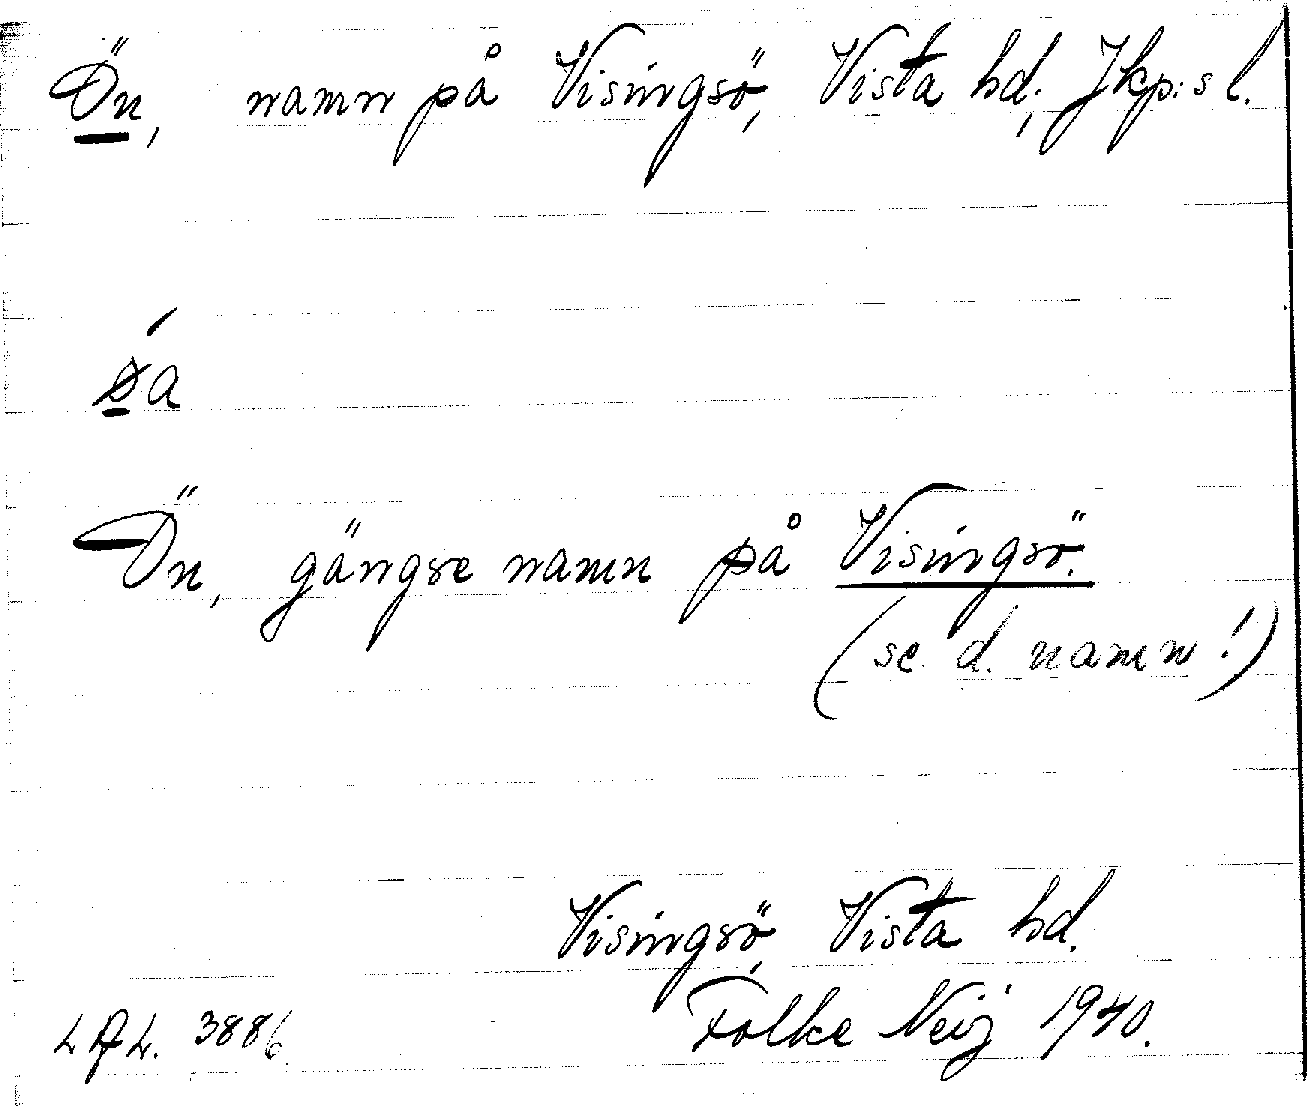 Ön, namn på Visingsö, Vista hd, Jkp:s l.
ǿa
Ön, gängse namn på Visingsö.
(se d. namn!)
Visingsö, Vista hd.
Folke Neij 1940.
3886